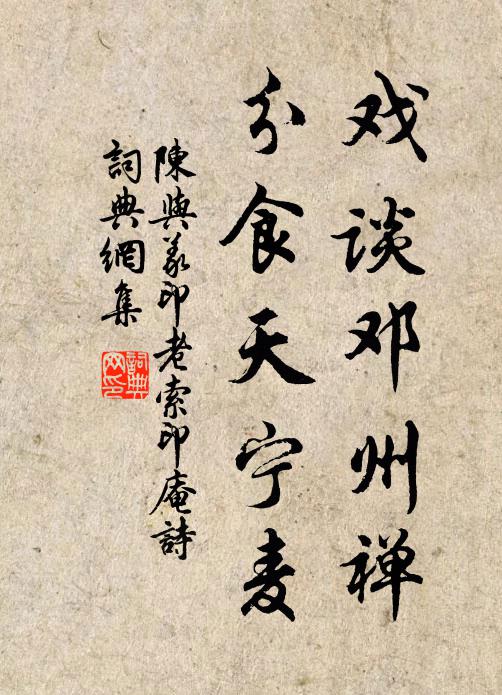 戏谈邓州禅
分食天宁麦
陳與義印老索印庵詩
詞典網集
詞典
网印